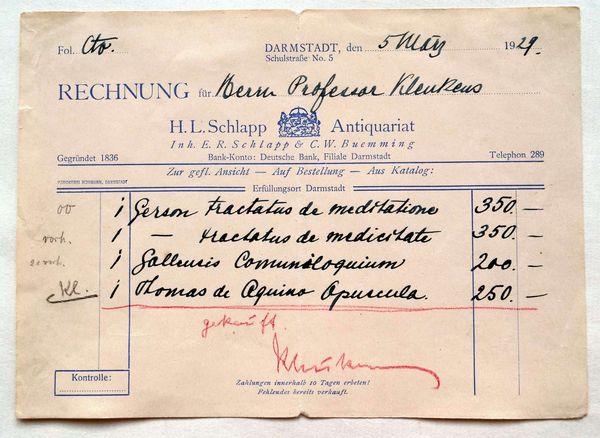 Fol. Cto. DARMSTADT, den 5 März 1929.
Schulstraße No. 5
RECHNUNG für Herrn Professor Kleukens
H. L. Schlapp Antiquariat
Inh. E. R. Schlapp & C. W. Buemming
Gegründet 1836 Bank-Konto: Deutsche Bank, Filiale Darmstadt Telephon 289
Zur gefl. Ansicht — Auf Bestellung — Aus Katalog:
DARMSTADT Erfüllungsort Darmstadt
00 1 Gerson tractatus de meditatione 350. —
vorh. 1 — tractatus de medicitate 350. —
vorh. 1 Gallensis Comuniloquium 200. —
Kl. 1 Thomas de Aquino Opuscula. 250. —
gekauft.
Kleukens
Kontrolle:
Zahlungen innerhalb 10 Tagen erbeten!
Fehlendes bereits verkauft.